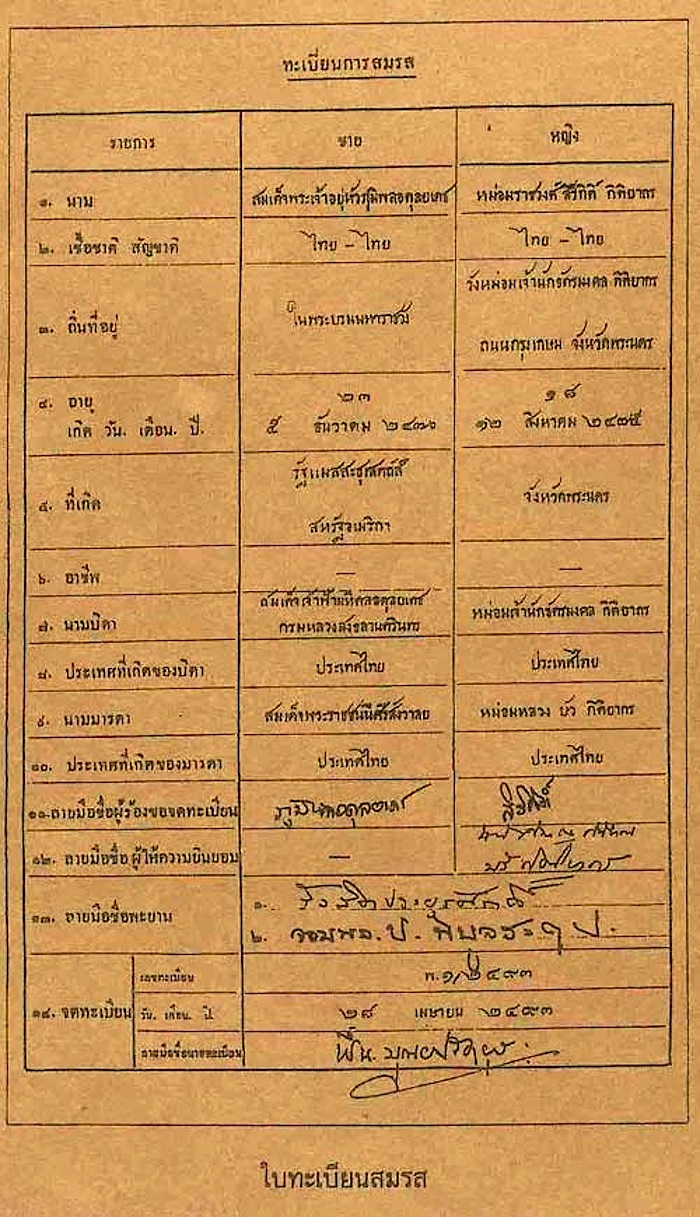 ทะเบียนการสมรส
รายการ ชาย หญิง
๑. นาม สมเด็จพระเจ้าอยู่หัวภูมิพลอดุลยเดช หม่อมราชวงศ์ สิริกิติ์ กิติยากร
๒. เชื้อชาติ สัญชาติ ไทย - ไทย ไทย - ไทย
๓. ถิ่นที่อยู่ ในพระบรมมหาราชวัง วังหม่อมเจ้านักขัตรมงคล กิติยากร
ถนนกรุงเกษม จังหวัดพระนคร
๔. อายุ ๒๓ ๑๘
เกิด วัน. เดือน. ปี. ๕ ธันวาคม ๒๔๗๐ ๑๒ สิงหาคม ๒๔๗๕
๕. ที่เกิด รัฐแมสสะชูเสตส์ จังหวัดพระนคร
สหรัฐอเมริกา
๖. อาชีพ — —
๗. นามบิดา สมเด็จเจ้าฟ้ามหิดลอดุลยเดช หม่อมเจ้านักขัตรมงคล กิติยากร
กรมหลวงสงขลานครินทร์
๘. ประเทศที่เกิดของบิดา ประเทศไทย ประเทศไทย
๙. นามมารดา สมเด็จพระราชชนนีศรีสังวาลย์ หม่อมหลวง บัว กิติยากร
๑๐. ประเทศที่เกิดของมารดา ประเทศไทย ประเทศไทย
๑๑. ลายมือชื่อผู้ร้องขอจดทะเบียน ภูมิพลอดุลยเดช สิริกิติ์
๑๒. ลายมือชื่อ ผู้ให้ความยินยอม —
๑๓. ลายมือชื่อพะยาน ๑. รังสิตประยูรศักดิ์
๒. จอมพล ป. พิบูลสงคราม
๑๔. จดทะเบียน เลขทะเบียน พ.๑/๒๔๙๓
วัน. เดือน. ปี. ๒๘ เมษายน ๒๔๙๓
ลายมือชื่อนายทะเบียน ฟื้น บุณยปรัตยุธ
ใบทะเบียนสมรส